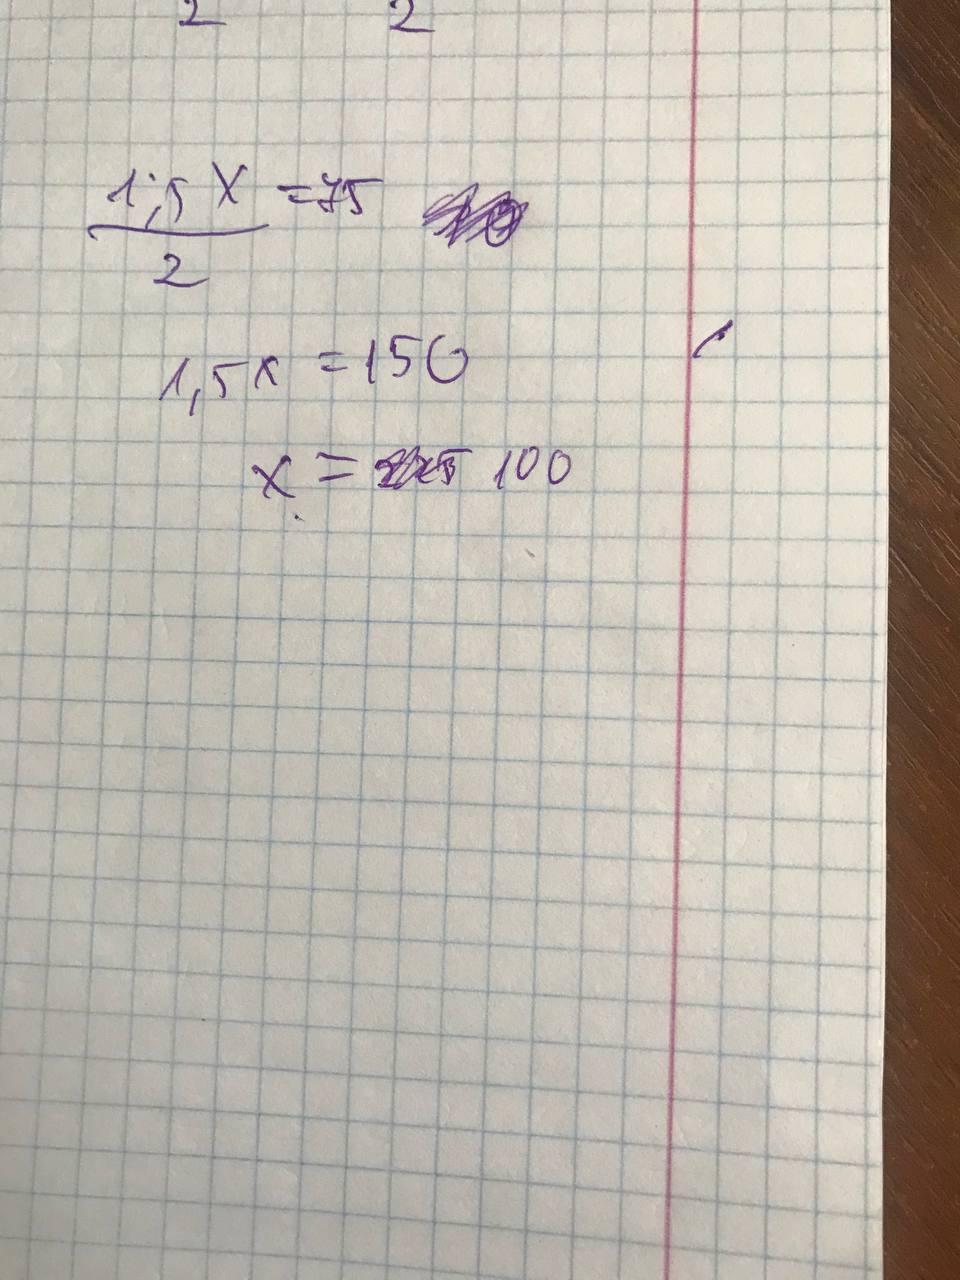 2 2
1,5 X = 75
2
1,5x = 150
x = 100